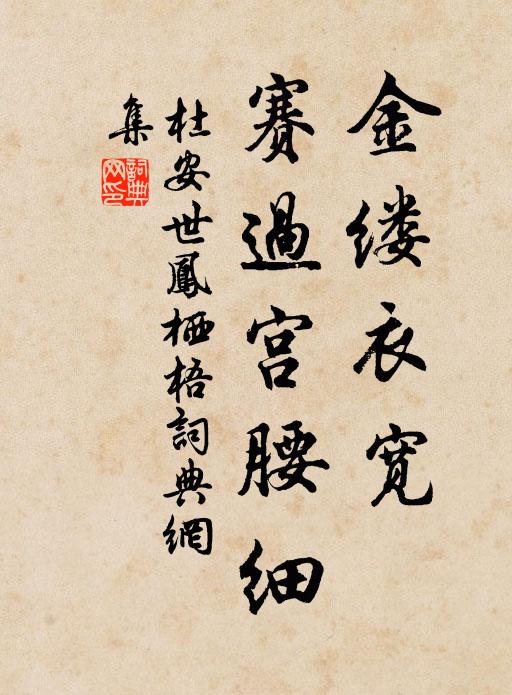 金缕衣宽
赛過宫腰細
杜安世鳳栖梧詞典網
集
詞典
网印